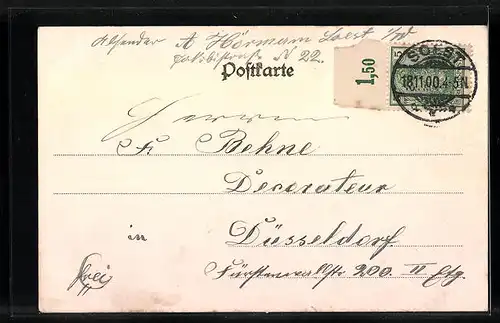 Absender A Hörmann Soest i/W
Jakobistraße N 22.
Postkarte
1,50
SOEST
18.11.00.4-5N.
Herrn
Fr. Behne
Decorateur
in
Düsseldorf
Fürstenwallstr 200. II Etg.
frei